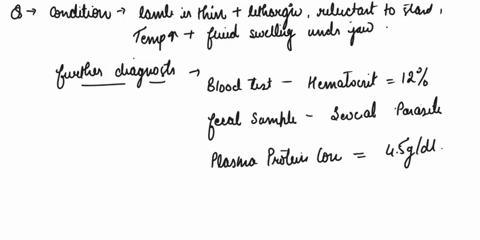 Q → Condition → lamb is thin + lethargic, reluctant to stand,
Temp ↑ + fluid swelling under jaw.
further diagnosis → Blood Test - Hematocrit = 12%
fecal Sample - Several Parasite
Plasma Protein Con = 4.5g/dl.